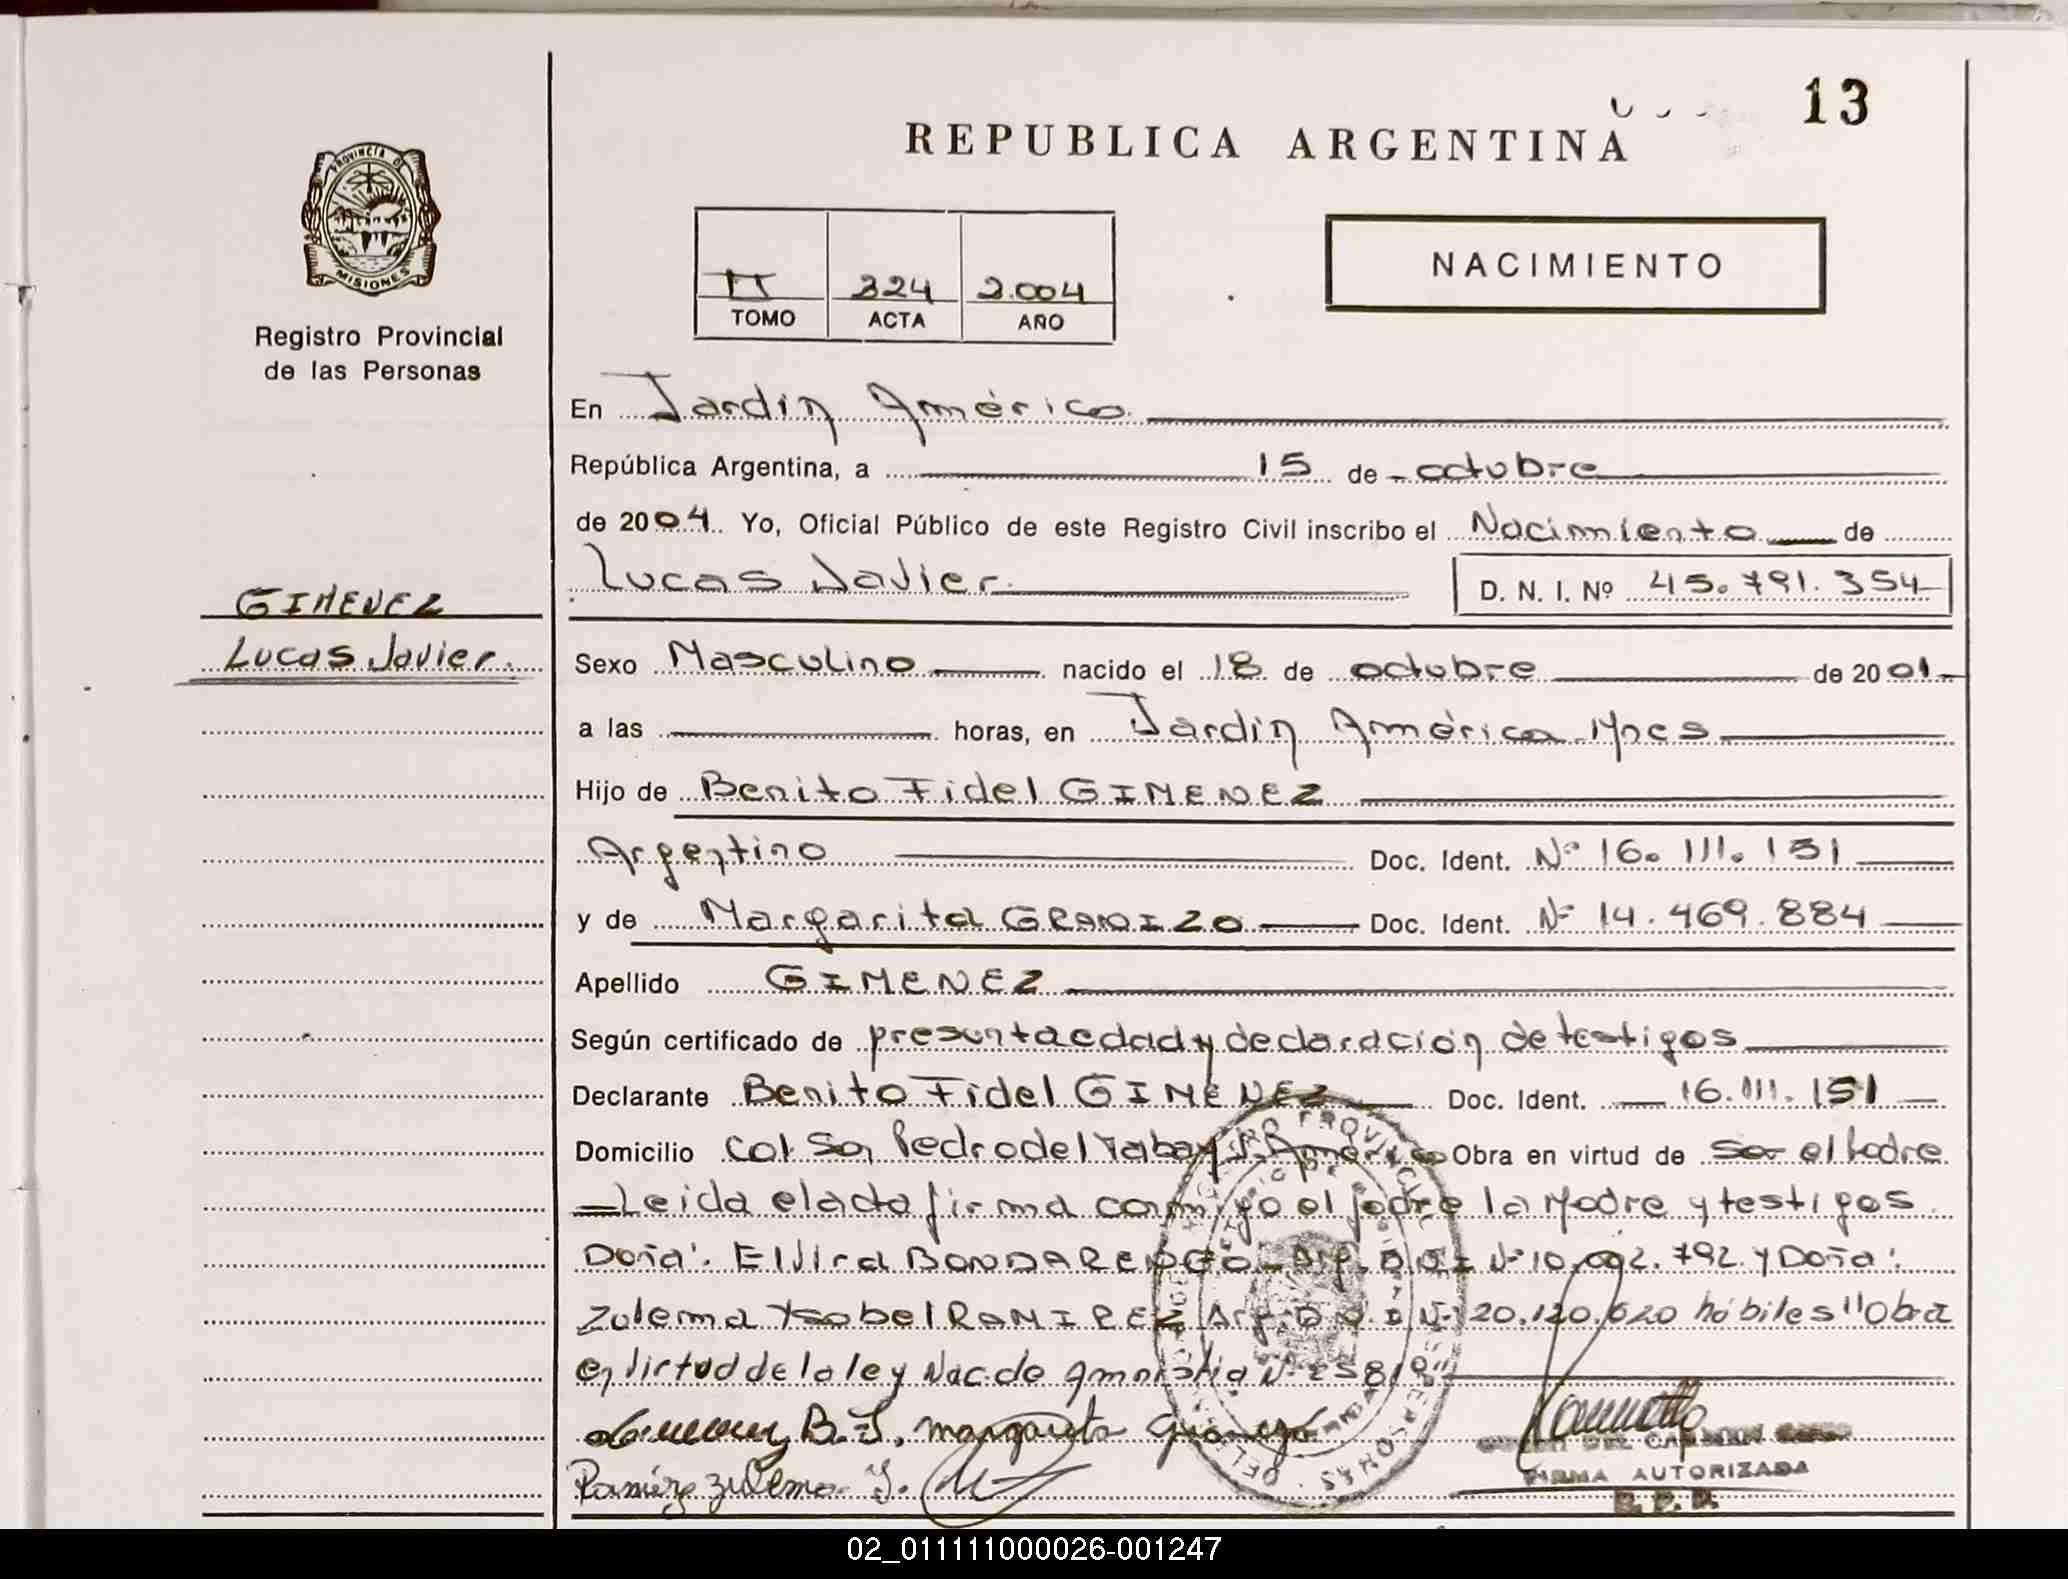 13
REPUBLICA ARGENTINA
PROVINCIA DE
MISIONES
Registro Provincial
de las Personas
II 324 2.004
TOMO ACTA AÑO
NACIMIENTO
En Jardín América
República Argentina, a 15 de octubre
de 2004. Yo, Oficial Público de este Registro Civil inscribo el Nacimiento de
Lucas Javier. D. N. I. Nº 45.791.354
GIMENEZ
Lucas Javier.
Sexo Masculino nacido el 18 de octubre de 2001
a las horas, en Jardín América Mnes
Hijo de Benito Fidel GIMENEZ
Argentino Doc. Ident. Nº 16.111.151
y de Margarita GRANIZO Doc. Ident. Nº 14.469.884
Apellido GIMENEZ
Según certificado de presunta edad y declaración de testigos
Declarante Benito Fidel GIMENEZ Doc. Ident. 16.111.151
Domicilio Col. San Pedro del Yabay J. América Obra en virtud de ser el padre
Leida el acta firma conmigo el padre la Madre y testigos
Doña: Elvira BONDARENCO Arg. D.N.I Nº 10.002.792. y Doña:
Zulema Ysabel RAMIREZ Arg. D.N.I Nº 20.120.620 hábiles "Obra
en virtud de la ley Nac. de Amnistia Nº 25819"
B. F. margarita
Ramírez Zulema Y.
DEL CARMEN
FIRMA AUTORIZADA
R. P. P.
02_011111000026-001247